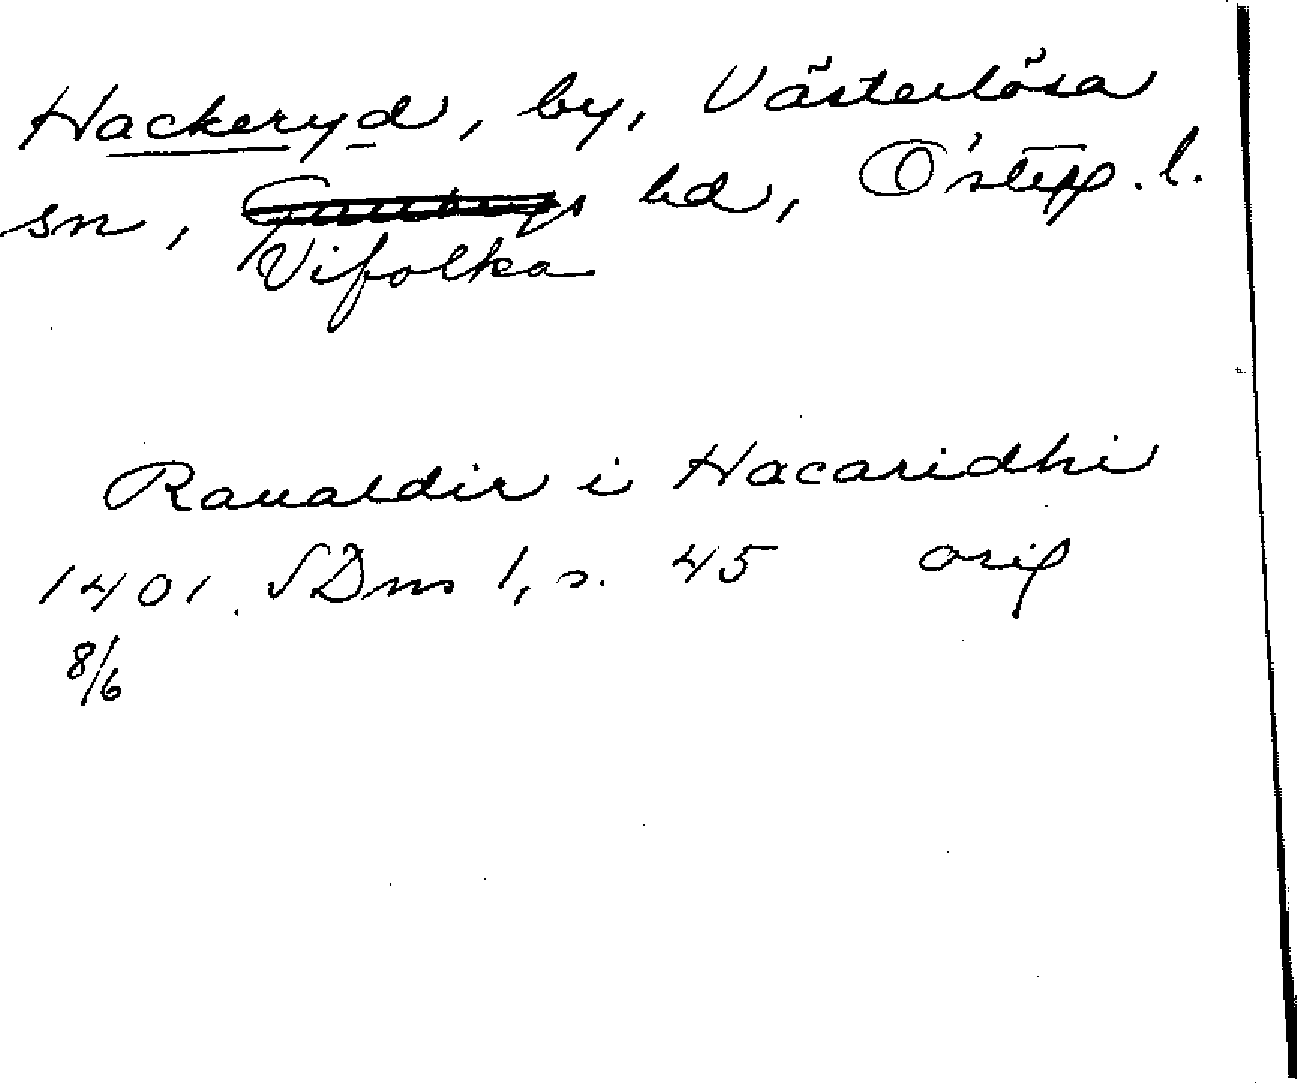 Hackeryd, by, Västerlösa
sn, hd, Östg. l.
Vifolka
Raualdir i Hacaridhi
1401. SDns 1, s. 45 orig
8/6